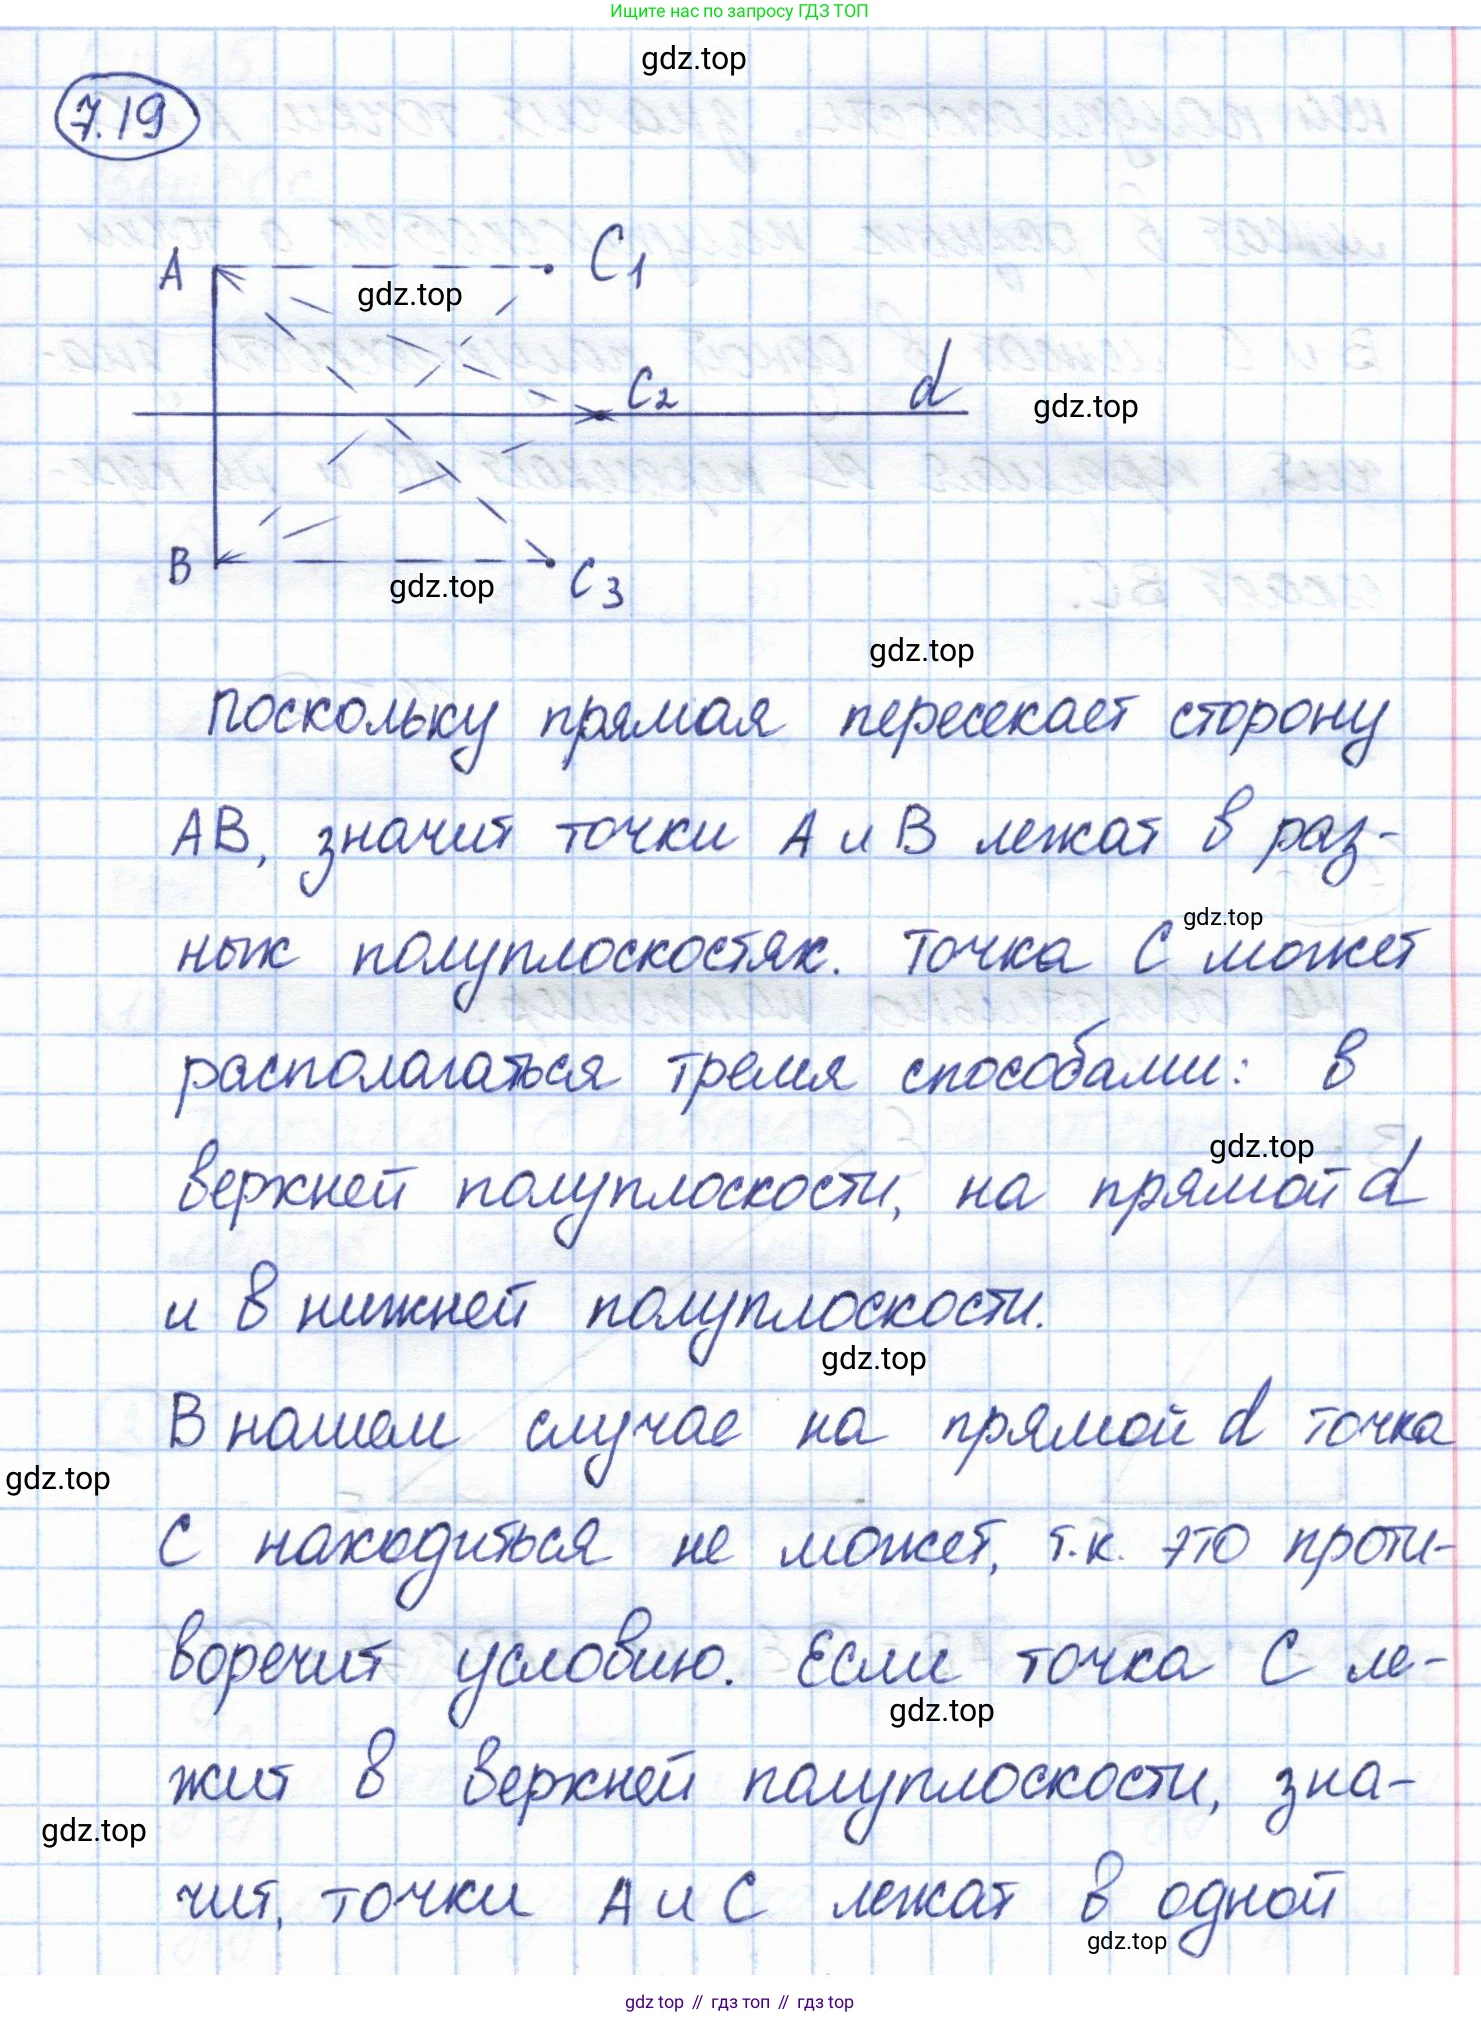 Ищите нас по запросу ГДЗ ТОП
gdz.top
7.19
A
C1
gdz.top
C2
d
gdz.top
B
gdz.top
C3
gdz.top
поскольку прямая пересекает сторону
AB, значит точки A и B лежат в раз-
ных полуплоскостях. Точка C может
gdz.top
располагаться тремя способами: в
gdz.top
верхней полуплоскости, на прямой d
и в нижней полуплоскости.
gdz.top
В нашем случае на прямой d точка
gdz.top
C находиться не может, т.к. это проти-
воречит условию. Если точка C ле-
gdz.top
жит в верхней полуплоскости, зна-
gdz.top
чит, точки A и C лежат в одной
gdz.top
gdz top // гдз топ // гдз top